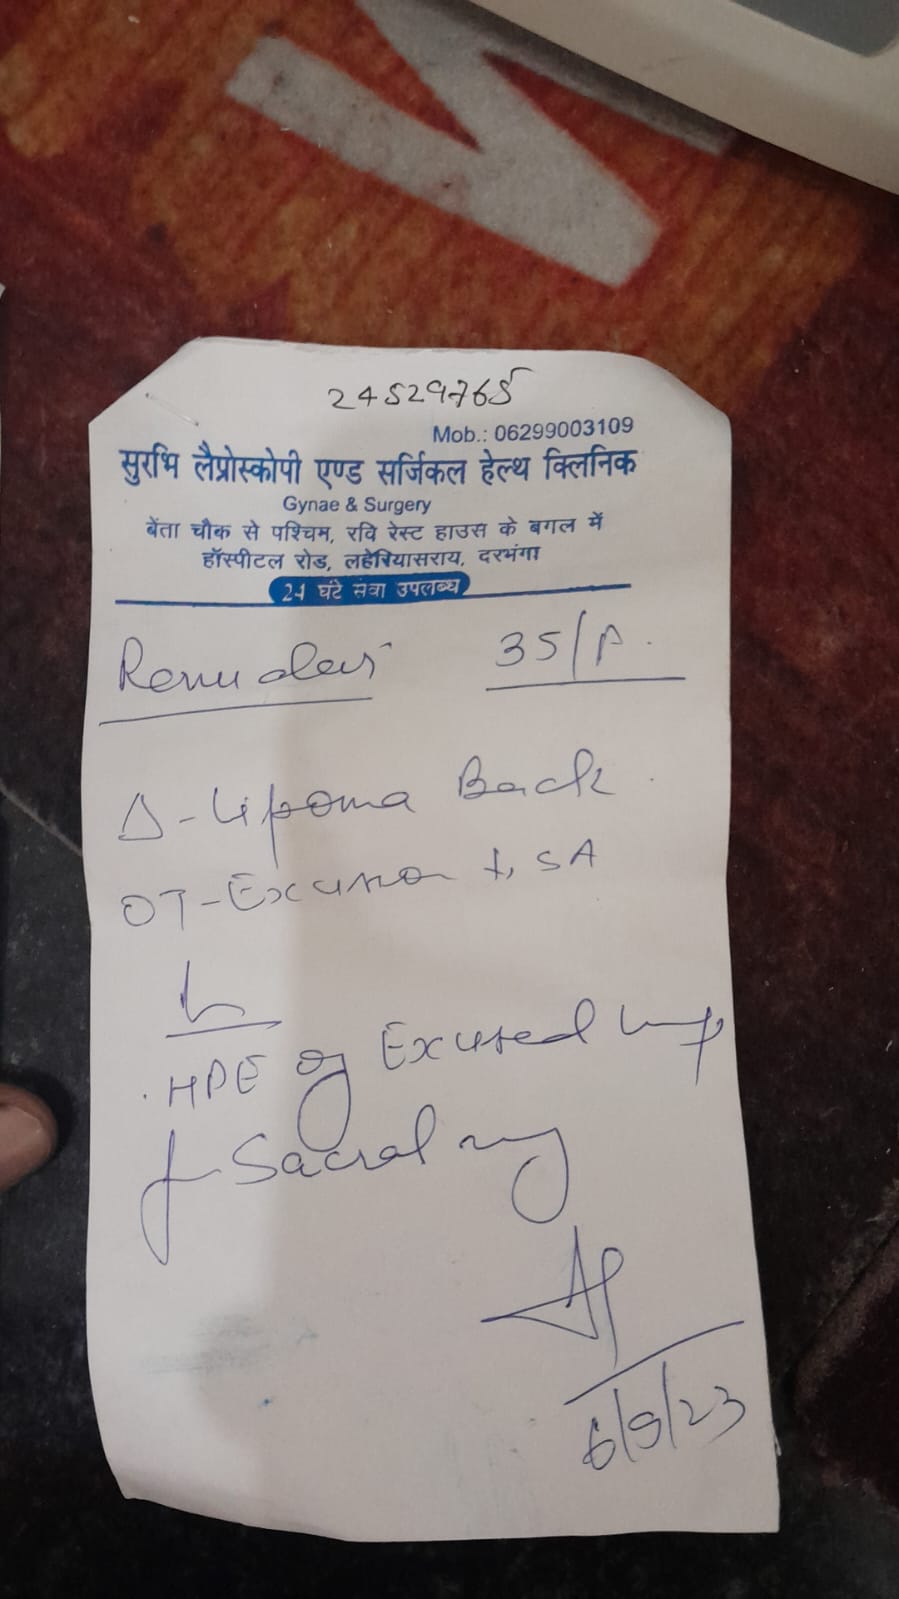 24529765
Mob.: 06299003109
सुरभि लैप्रोस्कोपी एण्ड सर्जिकल हेल्थ क्लिनिक
Gynae & Surgery
बेंता चौक से पश्चिम, रवि रेस्ट हाउस के बगल में
हॉस्पीटल रोड, लहेरियासराय, दरभंगा
24 घंटे सेवा उपलब्ध
Renu devi 35/F.
Δ - Lipoma Back.
OT - Excision SA
HPE of Excised lump
Sacral
6/9/23